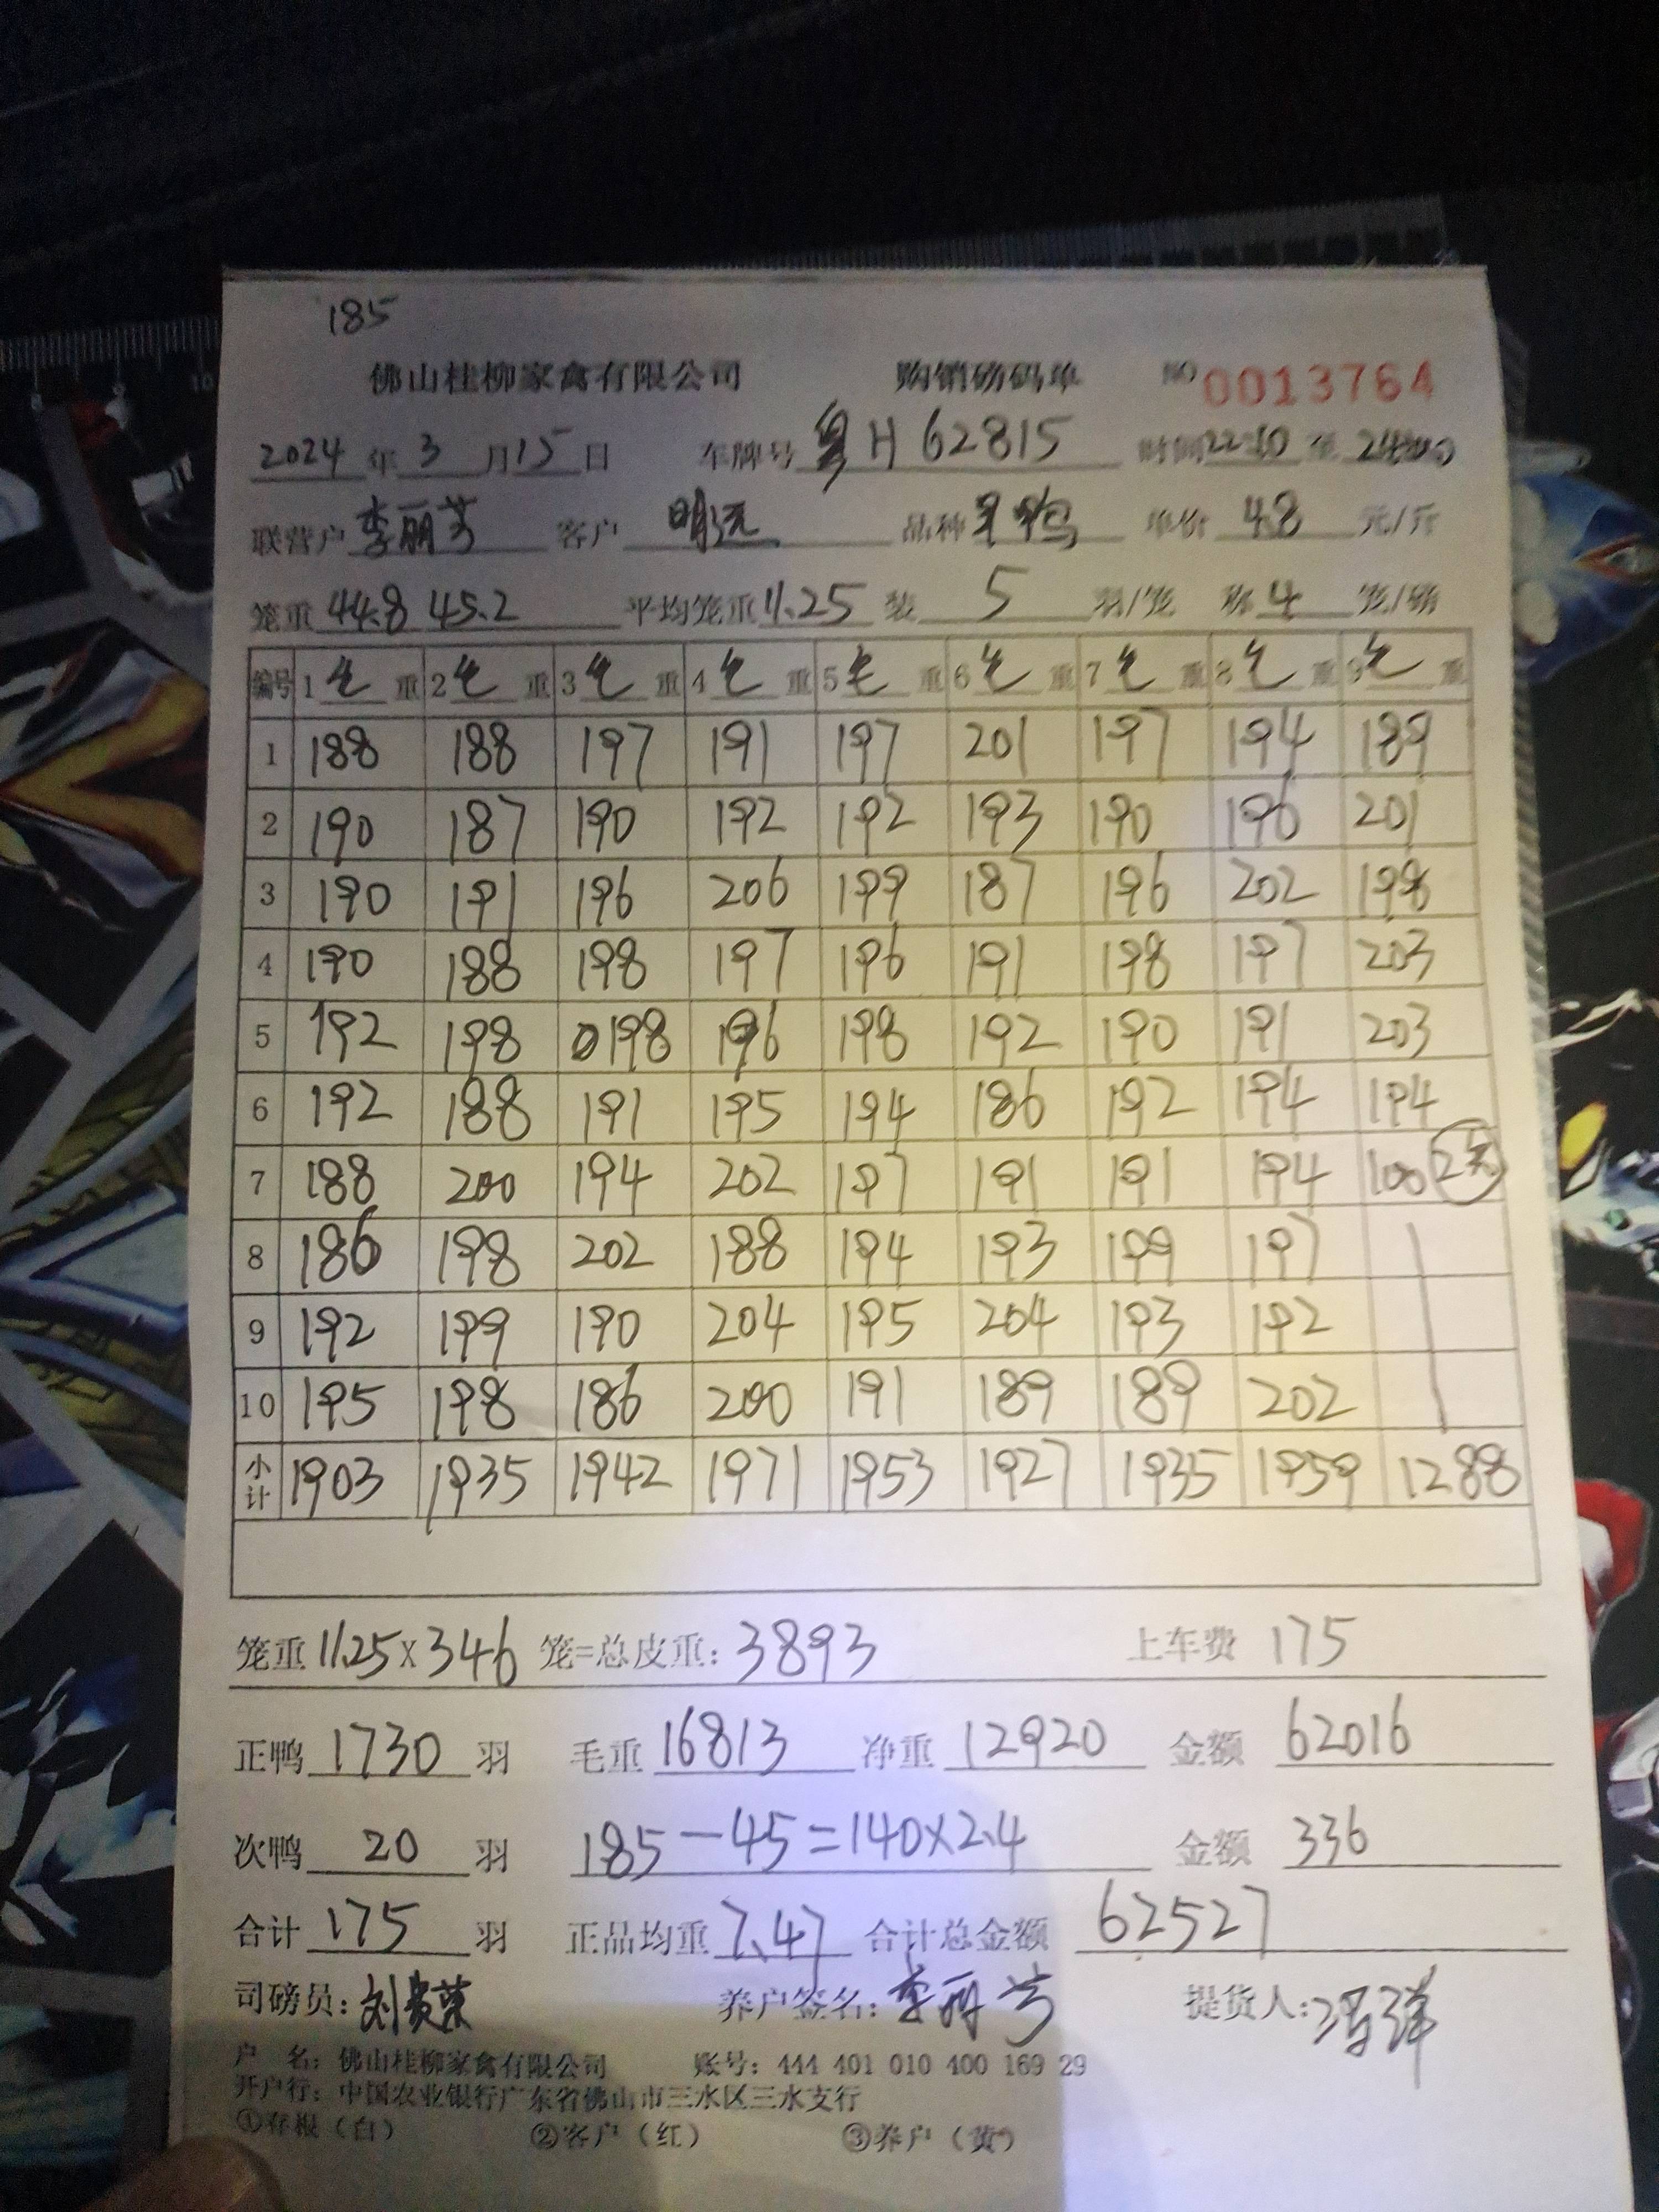 185
佛山桂柳家禽有限公司 购销磅码单 NO 0013764
2024 年 3 月 15 日 车牌号 粤H 62815 时间 22:10 至
联营户 李丽芳 客户 明远 品种 单价 4.8 元/斤
笼重 44.8 45.2 平均笼重 11.25 装 5 羽/笼 称 4 笼/磅
编号 1 毛 重 2 毛 重 3 毛 重 4 毛 重 5 毛 重 6 毛 重 7 毛 重 8 毛 重 9 毛 重
1 188 188 197 191 197 201 197 194 189
2 190 187 190 192 192 193 190 196 201
3 190 191 196 206 199 187 196 202 198
4 190 188 198 197 196 191 198 197 203
5 192 198 198 196 198 192 190 191 203
6 192 188 191 195 194 186 192 194 194
7 188 200 194 202 197 191 191 194 100 2笼
8 186 198 202 188 194 193 199 197
9 192 199 190 204 195 204 193 192
10 195 198 186 200 191 189 189 202
小计 1903 1935 1942 1971 1953 1927 1935 1959 1288
笼重 11.25 x 346 笼=总皮重: 3893 上车费 175
正鸭 1730 羽 毛重 16813 净重 12920 金额 62016
次鸭 20 羽 185-45=140x2.4 金额 336
合计 175 羽 正品均重 7.47 合计总金额 62527
司磅员: 刘贵荣 养户签名: 李丽芳 提货人:
户 名: 佛山桂柳家禽有限公司 账号: 444 401 010 400 169 29
开户行: 中国农业银行广东省佛山市三水区三水支行
①存根(白) ②客户(红) ③养户(黄)